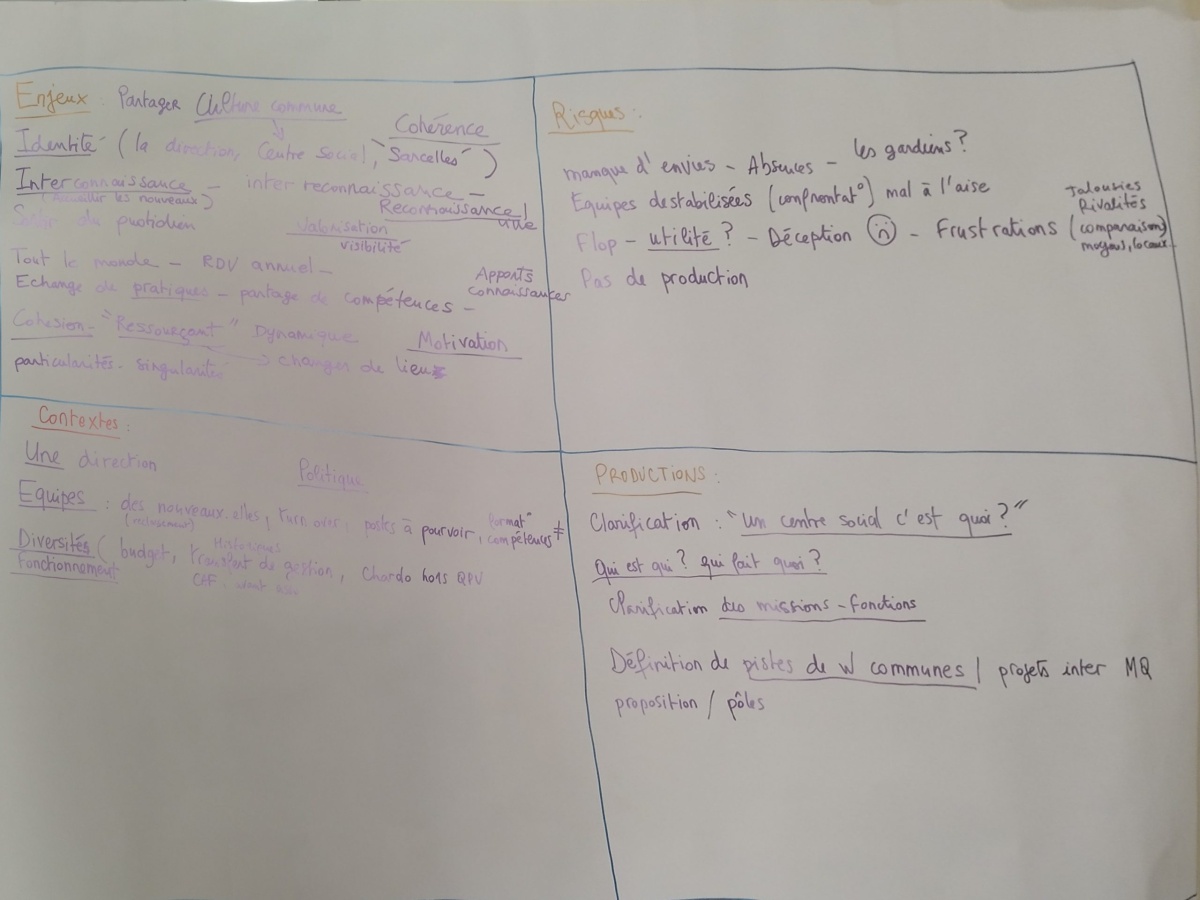 Enjeux : Partager Culture commune
Cohérence
Identité (la direction, Centre Social, "Sarcelles")
Interconnaissance - inter reconnaissance -
(Accueillir les nouveaux)
Reconnaissance/
utile
Sortir du quotidien
Valorisation
visibilité
Tout le monde - RDV annuel -
Apports
connaissances
Echange de pratiques - partage de compétences -
Cohésion - "Ressourçant" Dynamique
Motivation
particularités - singularités → changer de lieu
Risques :
manque d'envies - Absences - les gardiens ?
Equipes destabilisées (confrontat°) mal à l'aise
Jalousies
Rivalités
Flop - utilité ? - Déception ☹ - Frustrations (comparaison)
moyens, locaux
Pas de production
Contextes :
Une direction
Politique
Equipes : des nouveaux.elles, turn over, postes à pourvoir, format° compétences ≠
(recrutement)
Historiques
Diversités ( budget, transfert de gestion, Chardo hors QPV
fonctionnement
CAF
PRODUCTIONS :
Clarification : "Un centre social c'est quoi ?"
Qui est qui ? qui fait quoi ?
Clarification des missions - fonctions
Définition de pistes de W communes / projets inter MQ
proposition / pôles